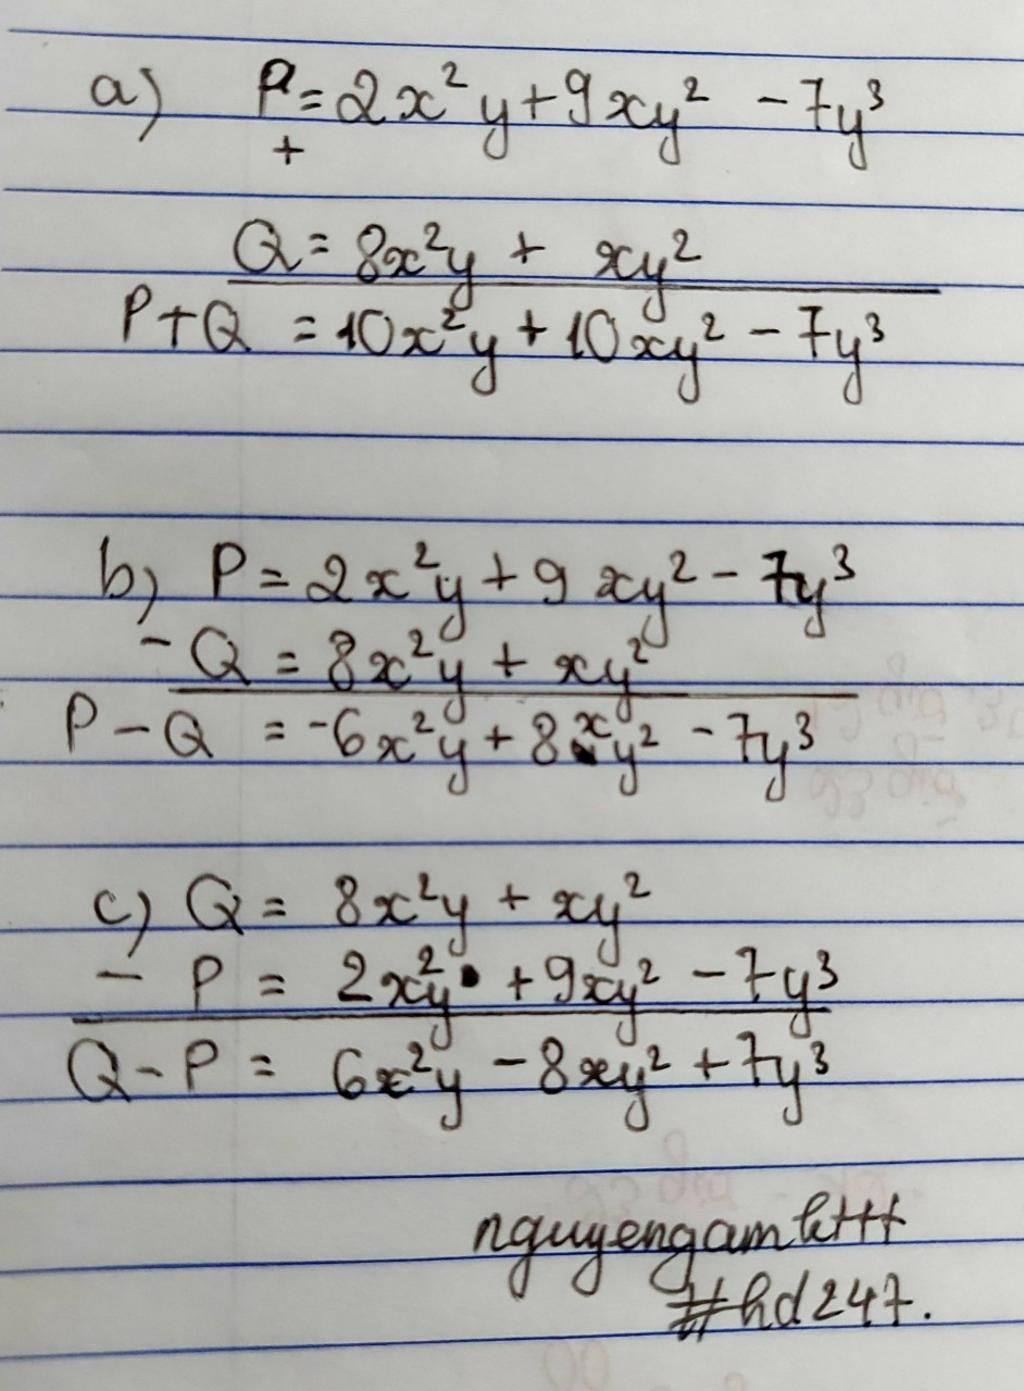 a) P = 2x²y + 9xy² - 7y³
+
Q = 8x²y + xy²
P + Q = 10x²y + 10xy² - 7y³
b) P = 2x²y + 9xy² - 7y³
- Q = 8x²y + xy²
P - Q = -6x²y + 8xy² - 7y³
c) Q = 8x²y + xy²
- P = 2x²y + 9xy² - 7y³
Q - P = 6x²y - 8xy² + 7y³
#hd247.